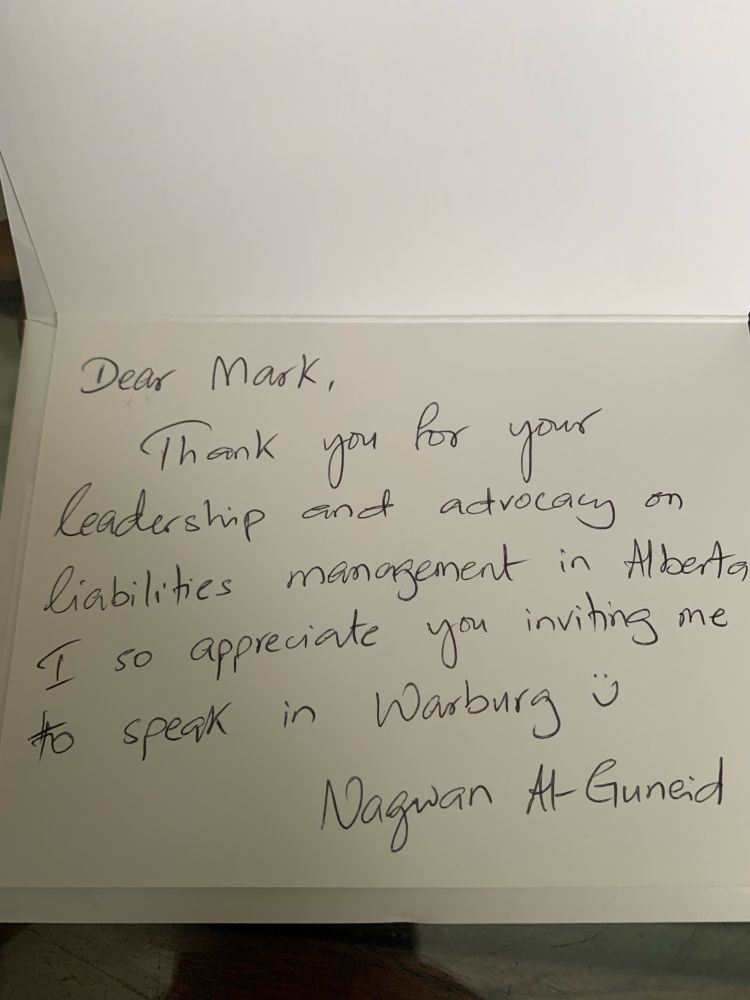 Dear Mark,
Thank you for your
leadership and advocacy on
liabilities management in Alberta
I so appreciate you inviting me
to speak in Warburg ü
Nagwan Al-Guneid